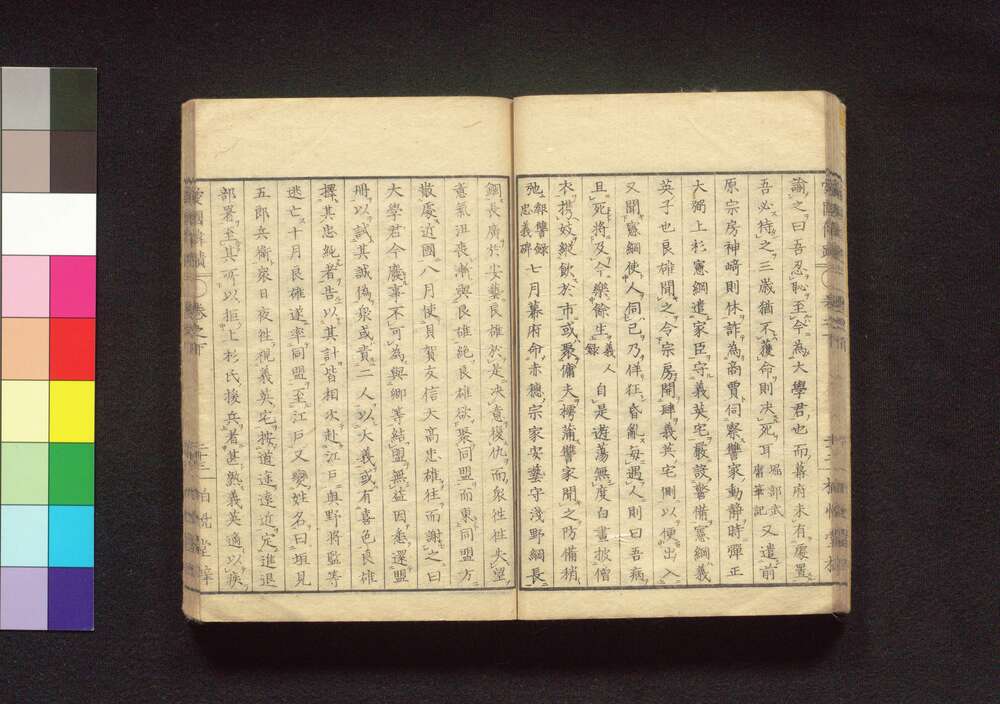 諭之曰吾忍恥至今為大學君也而幕府未有處置
吾必待之三歲猶不獲命則決死耳堀部武庸筆記又遣前
原宗房神﨑則休詐為商賈伺察讐家動靜時彈正
大弼上杉憲綱遣家臣守義英宅嚴設警備憲綱義
英子也良雄聞之令宗房開肆義英宅側以便出入
又聞憲綱使人伺己乃佯狂昏亂每遇人則曰吾病
且死將及今樂餘生義人錄自是遊蕩無度白晝披僧
衣携妓縱飲於市或聚傭夫樗蒲讐家聞之防備稍
弛報讐錄忠義碑七月幕府命赤穗宗家安藝守淺野綱長
綱長廣於安藝良雄於是決意復仇而衆往往失望
意氣沮喪漸與良雄絕良雄欲聚同盟而東同盟方
散處近國八月使貝賀友信大高忠雄往而謝之曰
大學君今廢事不可為與卿等結盟無益因悉還盟
冊以試其誠偽衆或責二人以大義或有喜色良雄
擇其忠純者告以其計皆相次赴江戶與野將監等
逃亡十月良雄遂率同盟至江戶又變姓名曰垣見
五郎兵衛衆日夜往視義英宅按道途遠近定進退
部署至其可以拒上杉氏援兵者甚熟義英適以疾
愛國偉績
卷之